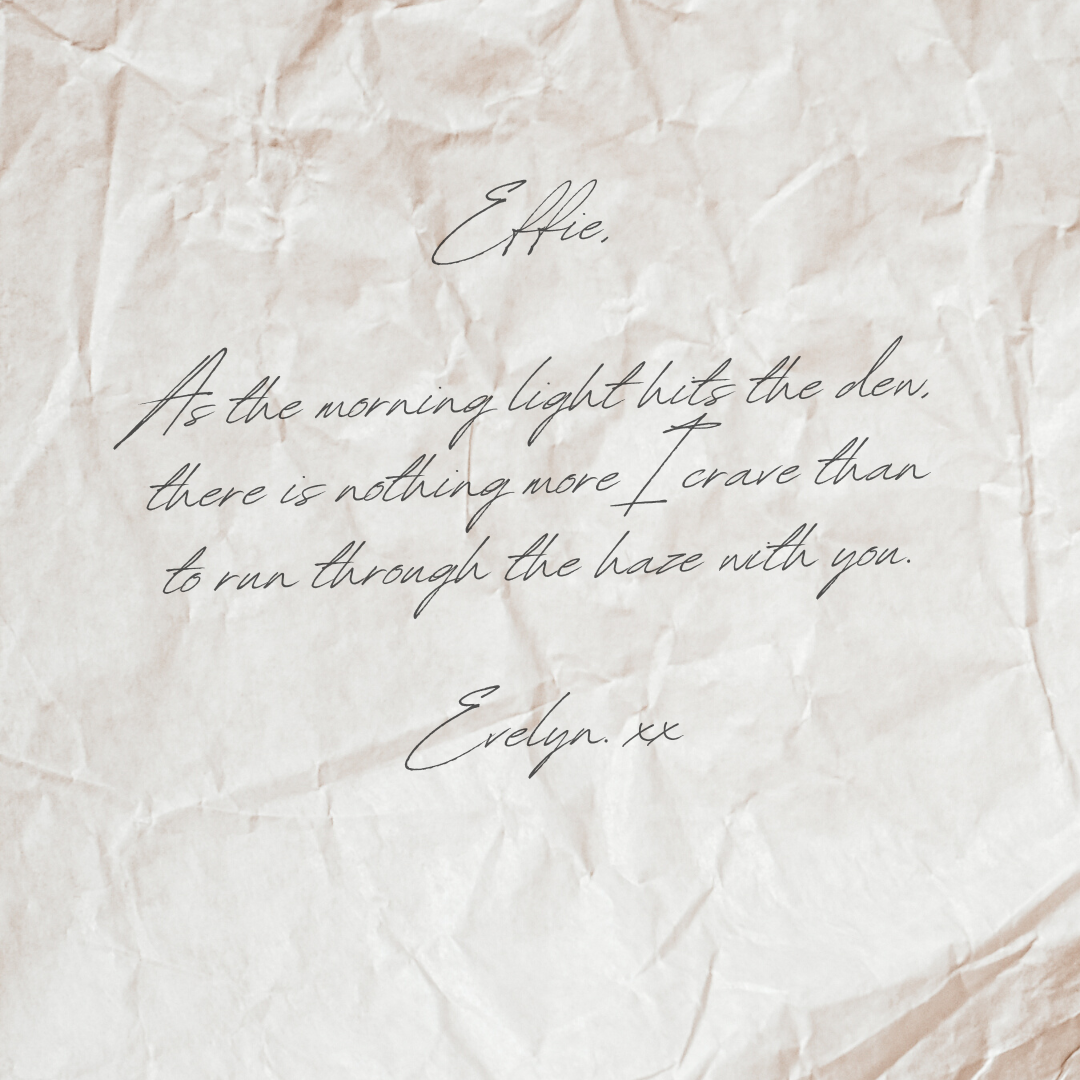 Effie,
As the morning light hits the dew,
there is nothing more I crave than
to run through the haze with you.
Evelyn. xx